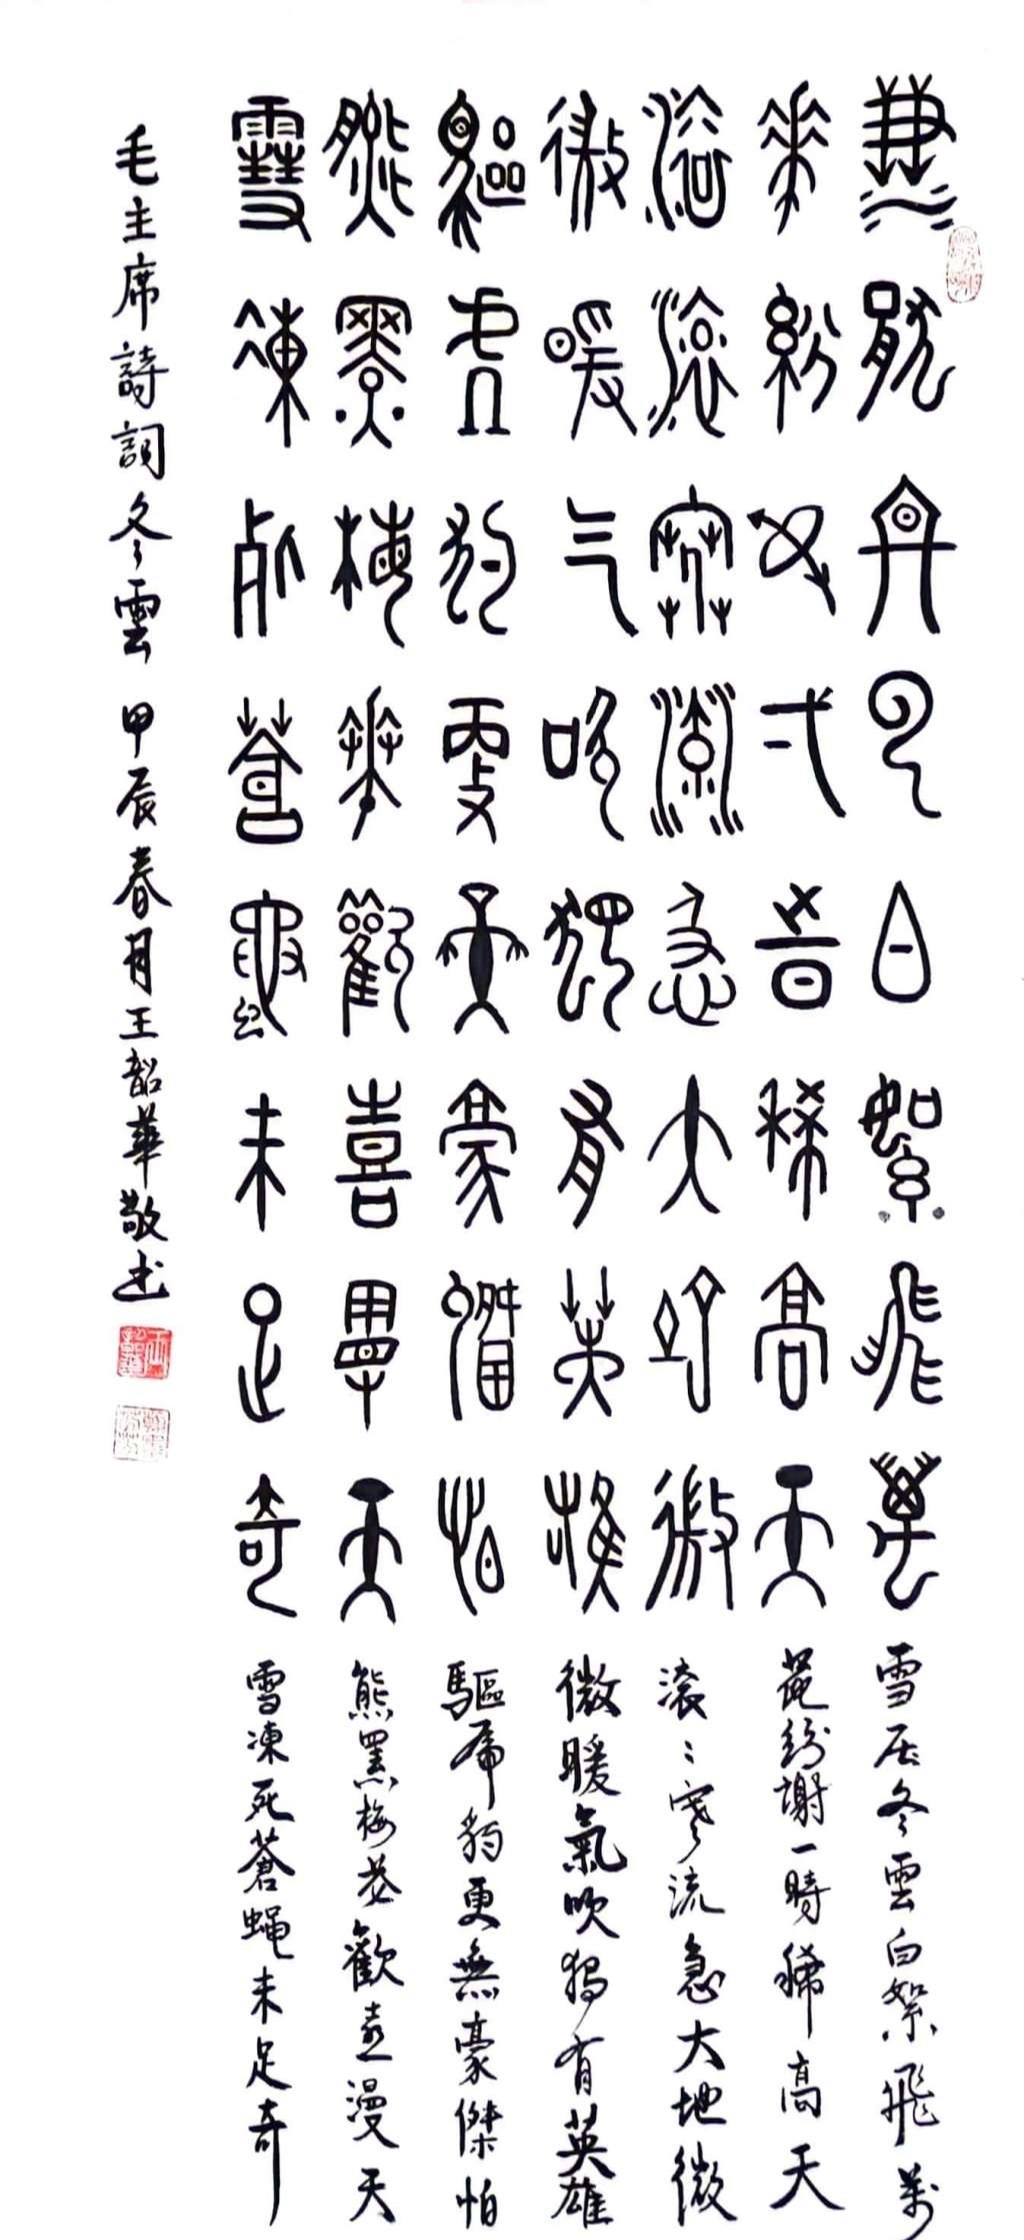 雪壓冬雲白絮飛萬
花紛謝一時稀高天
滾滾寒流急大地微
微暖气吹獨有英雄
驅虎豹更無豪傑怕
熊羆梅花歡喜漫天
雪凍死蒼蠅未足奇
雪压冬雲白絮飛萬
花紛謝一時稀高天
滚〻寒流急大地微
微暖氣吹独有英雄
驅虎豹更無豪傑怕
熊罴梅花歡喜漫天
雪凍死蒼蝇未足奇
毛主席詩詞冬雲 甲辰春月王韶華敬书